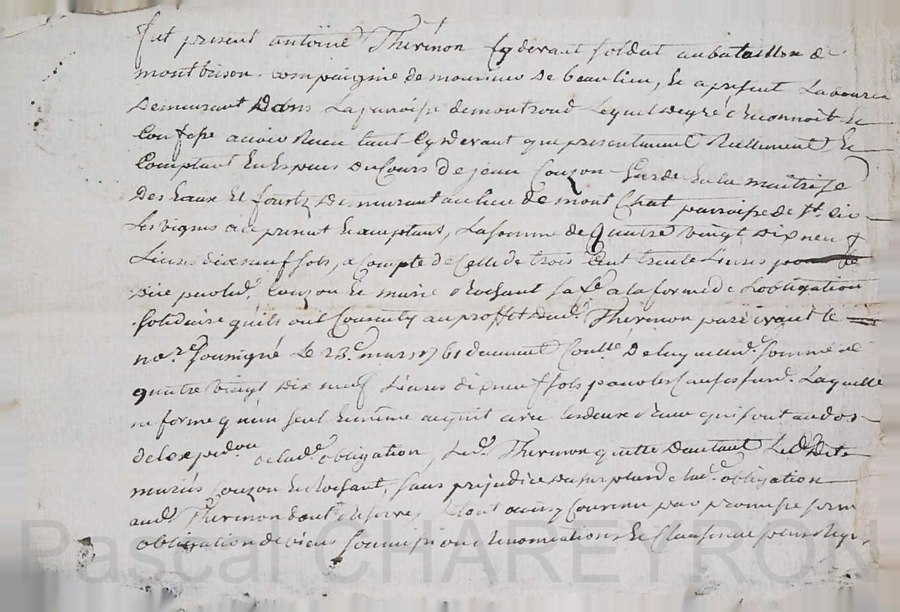 fut present antoine Thevenon cy devant soldat au bataillon de
montbrison compaignie de monsieur De beaulieu, et a present Laboureur
Demeurant Dans La paroisse de montroud Lequel De gré a Reconnoit et
Confesse avoir Receu tant cy Devant que presentement Reellement Et
Comptant En Especes Du Cours De jean Couzon Garde En la maitrise
Des Eaux Et forests Demeurant au lieu de mont Chat parroisse de St.
Les vignes ace present Et acceptant, La somme de quatre vingt dix neuf
Livres dix neuf sols, a Compte de Celle de trois Cent trente Livres
Couzon Et marie Rochant sa fe. a la forme de Lobligation
Solidaire quils ont Consenty au proffit dud. Thevenon par devant le
nore. soussigné Le 23e. mars 1761 deument Conllé De laquelle somme de
quatre vingt Dix neuf Livres dix neuf sols pour les causes susd. Laquelle
ne forme quun seul Et même acquit avec les deux qui sont au dos
de lexpedon. de lad. obligation, Led. Thevenon quitte Dautant Lesd.
mariés Couzon Et Rochant, sans prejudice du surplus de lad. obligation
aud. Thevenon dont il reserve, Dont ainsy Convenu par promesse
obligation de biens soumissions Renonciations Et Clauses
Pascal CHAREYRON